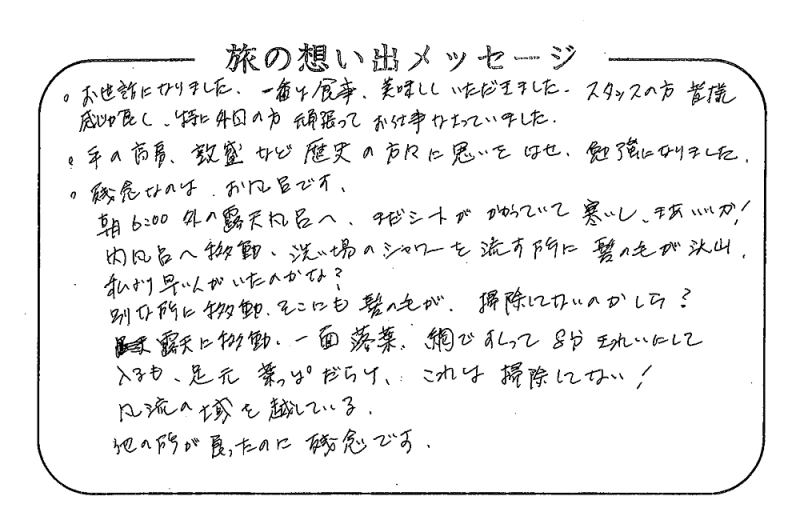 旅の想い出メッセージ
。お世話になりました、一番は食事、美味しくいただきました。スタッフの方 皆様
感じが良く、特に外国の方 頑張って お仕事なさっていました。
。平の高房、敦盛など歴史の方々に思いをはせ、勉強になりました。
。残念なのは、お風呂です、
朝6:00 外の露天風呂へ、まだシートがかかっていて寒いし、まあいいか!
内風呂へ移動、洗い場のシャワーを流す所に髪の毛が沢山、
私より早い人がいたのかな?
別な所に移動、そこにも髪の毛が、掃除してないのかしら?
露天に移動、一面落葉、網ですくって 8分きれいにして
入るも、足元 葉っぱだらけ、これは掃除してない!
風流の域を越している。
他の所が良ったのに残念です。